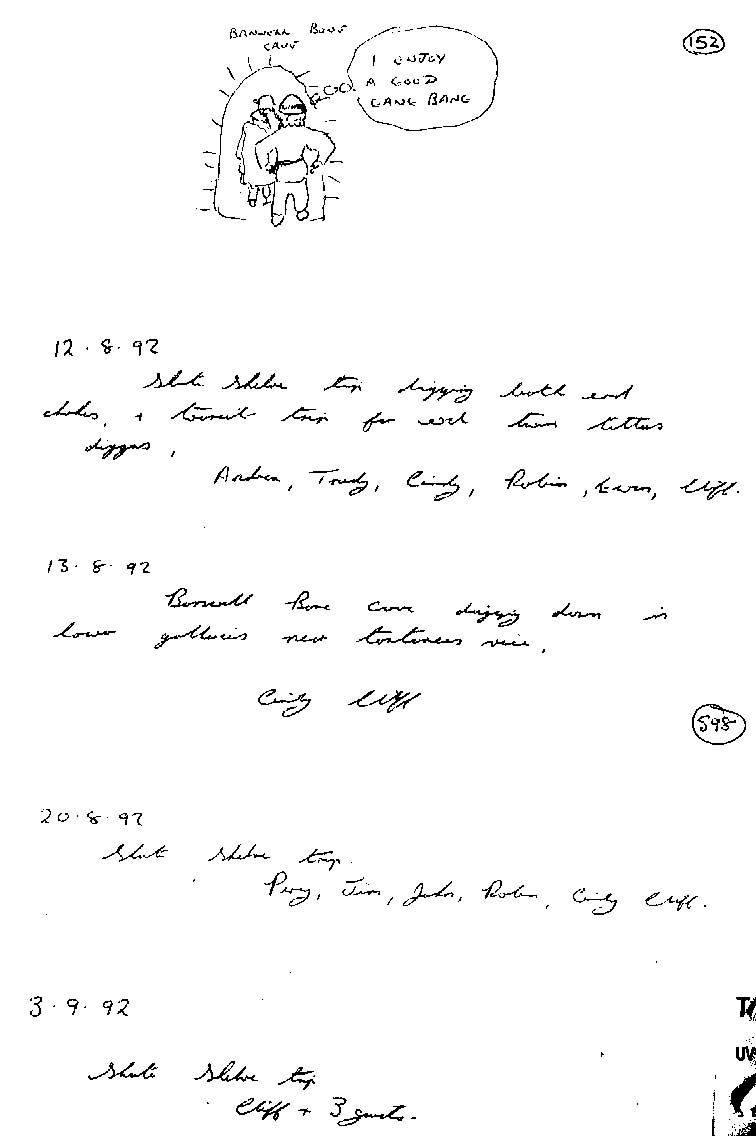 BANWELL BONE
CAVE
152
I ENJOY
A GOOD
GANG BANG
12.8.92
Shute Shelve trip digging both end
chokes, + tourist trip for
diggers,
Andrea, Trudy, Cindy, Robin, Ewan, Cliff.
13.8.92
Banwell Bone Cave digging down in
lower galleries near
Cindy Cliff
598
20.8.92
Shute Shelve trip.
Percy, Jim, John, Robin, Cindy Cliff.
3.9.92
Shute Shelve trip
Cliff + 3 guests.
UV